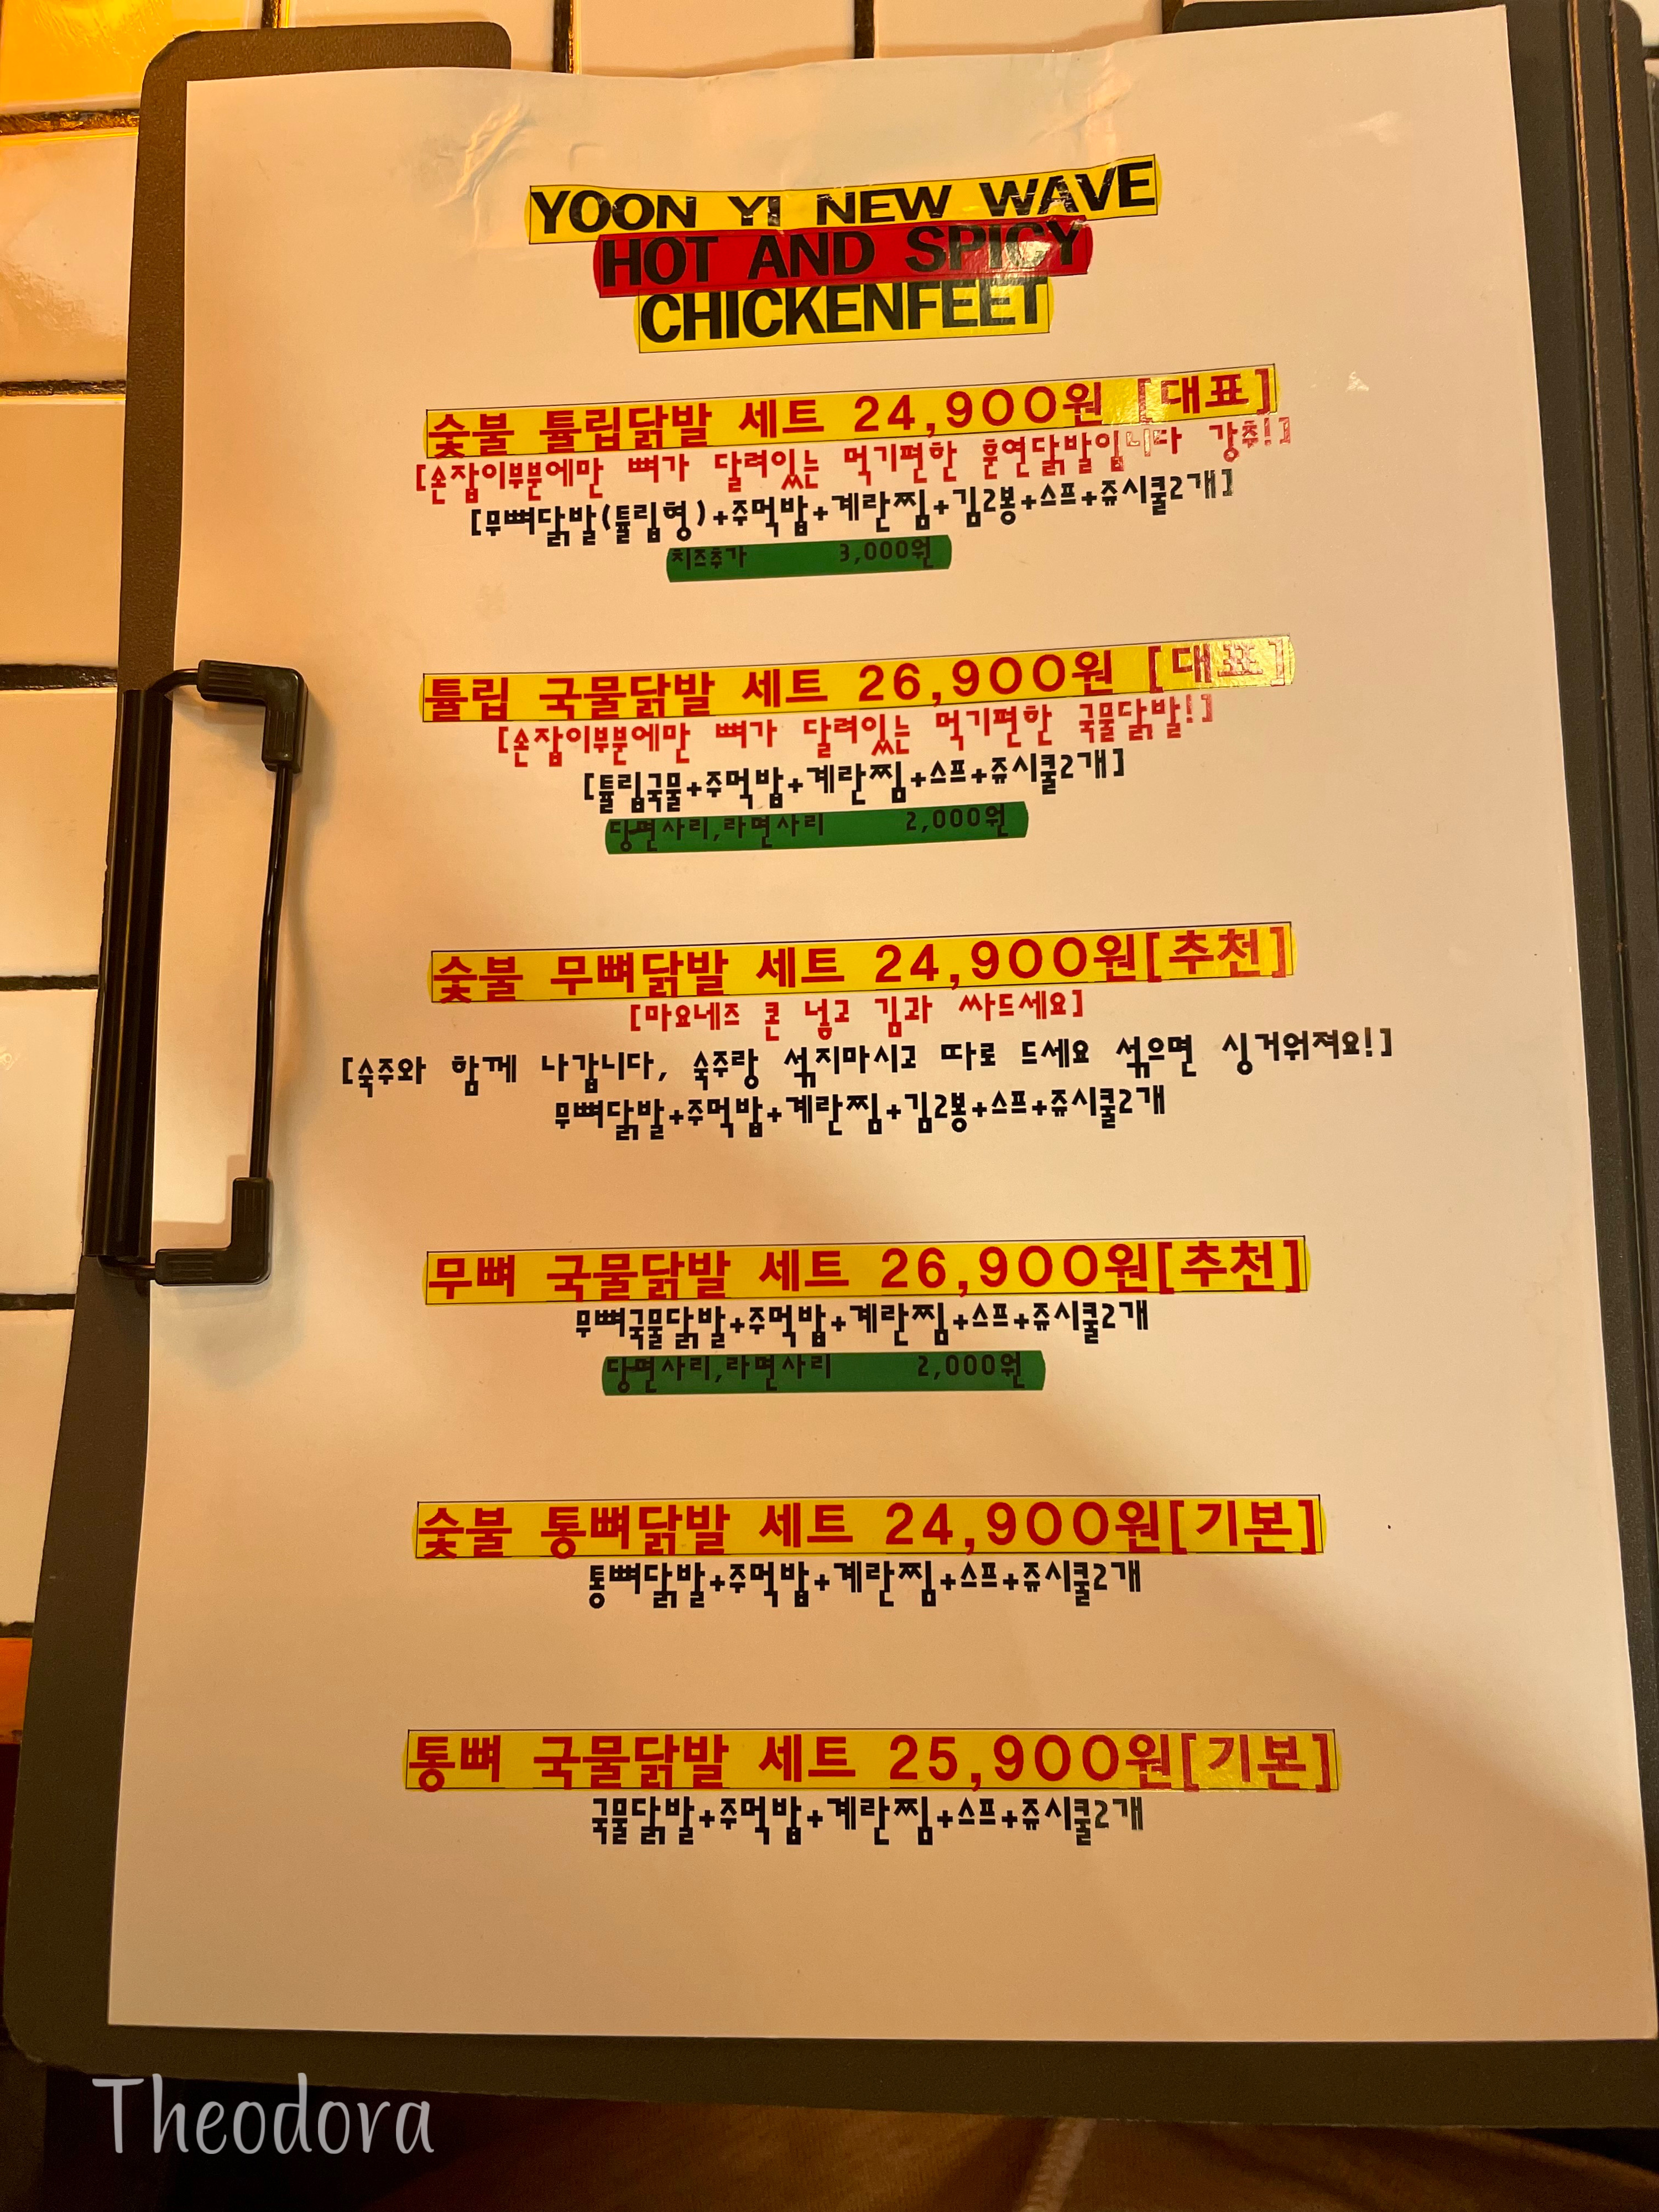 YOON YI NEW WAVE
HOT AND SPICY
CHICKENFEET
숯불 튤립닭발 세트 24,900원 [대표]
[손잡이부분에만 뼈가 달려있는 먹기편한 훈연닭발입니다 강추!]
[무뼈닭발(튤립형)+주먹밥+계란찜+김2봉+스프+쥬시쿨2개]
치즈추가 3,000원
튤립 국물닭발 세트 26,900원 [대표]
[손잡이부분에만 뼈가 달려있는 먹기편한 국물닭발!]
[튤립국물+주먹밥+계란찜+스프+쥬시쿨2개]
당면사리,라면사리 2,000원
숯불 무뼈닭발 세트 24,900원[추천]
[마요네즈 콘 넣고 김과 싸드세요]
[숙주와 함께 나갑니다, 숙주랑 섞지마시고 따로 드세요 섞으면 싱거워져요!]
무뼈닭발+주먹밥+계란찜+김2봉+스프+쥬시쿨2개
무뼈 국물닭발 세트 26,900원[추천]
무뼈국물닭발+주먹밥+계란찜+스프+쥬시쿨2개
당면사리,라면사리 2,000원
숯불 통뼈닭발 세트 24,900원[기본]
통뼈닭발+주먹밥+계란찜+스프+쥬시쿨2개
통뼈 국물닭발 세트 25,900원[기본]
국물닭발+주먹밥+계란찜+스프+쥬시쿨2개
Theodora